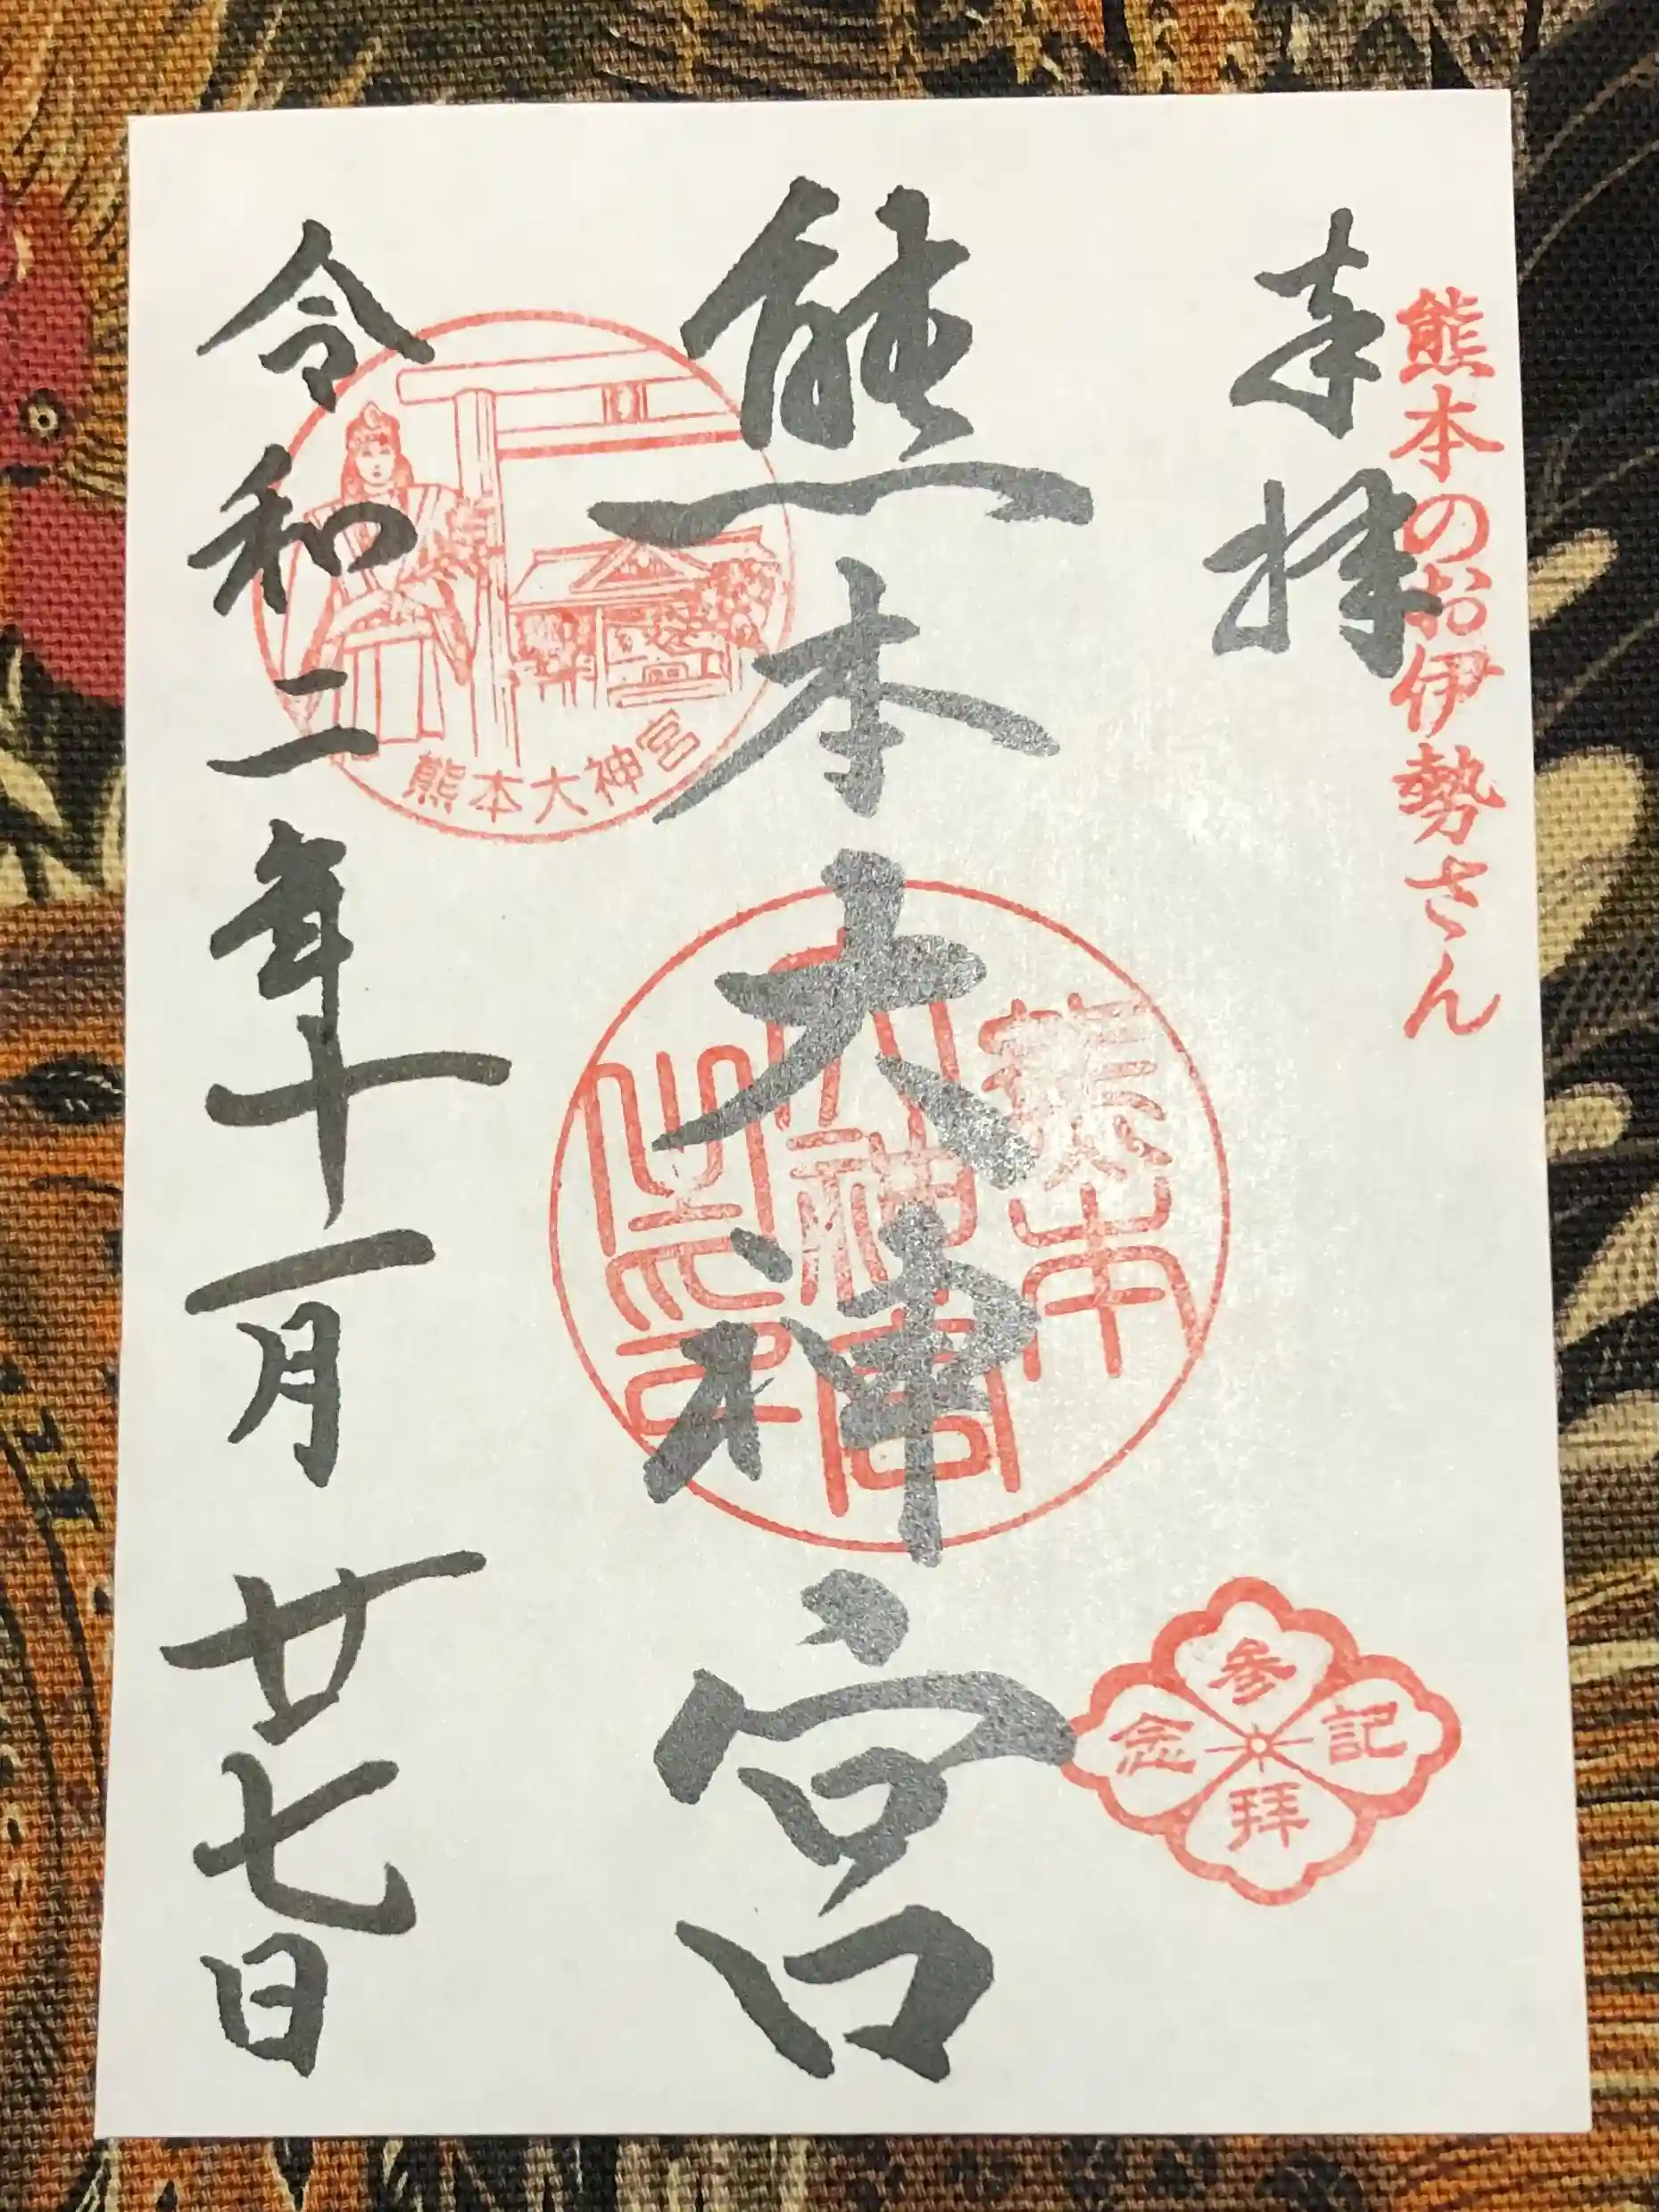 熊本のお伊勢さん
奉拝
参拝記念
熊本大神宮
熊本
大神宮
之印
熊本大神宮
令和二年十一月廿七日